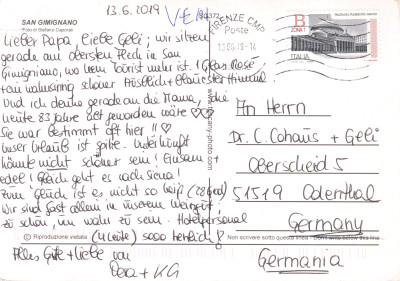 13.6.2019
SAN GIMIGNANO
Foto di Stefano Caporali
Lieber Papa, liebe Geli; wir sitzen
gerade am obersten Fleck in San
Gimignano, wo kein Tourist mehr ist. 1 Glas Rosé
wahnsinnig schöner Ausblick + blauester Himmel
Und ich denke gerade an die Mama, die
heute 83 Jahre alt geworden wäre ♡♡♡
Sie war bestimmt oft hier!! ♡
Unser Urlaub ist spitze. Unterkunft
könnte nicht schöner sein! Einsam +
edel! Gleich geht es nach Siena!
Zum Glück ist es nicht so heiß (28 Grad)
Wir sind fast allein in unserem Weingut,
zu schön, um wahr zu sein. Hotelpersonal
(4 Leute) sooo herrlich!
© Riproduzione vietata
Alles Gute + Liebe von
+ KG
FIRENZE CMP
Poste
13.06.19-14
B
ZONA 1
ITALIA
An Herrn
Dr. C. Cohaus + Geli
Oberscheid 5
51519 Odenthal
Germany
Non scrivere sotto questa linea - Don't write below this line
Germania